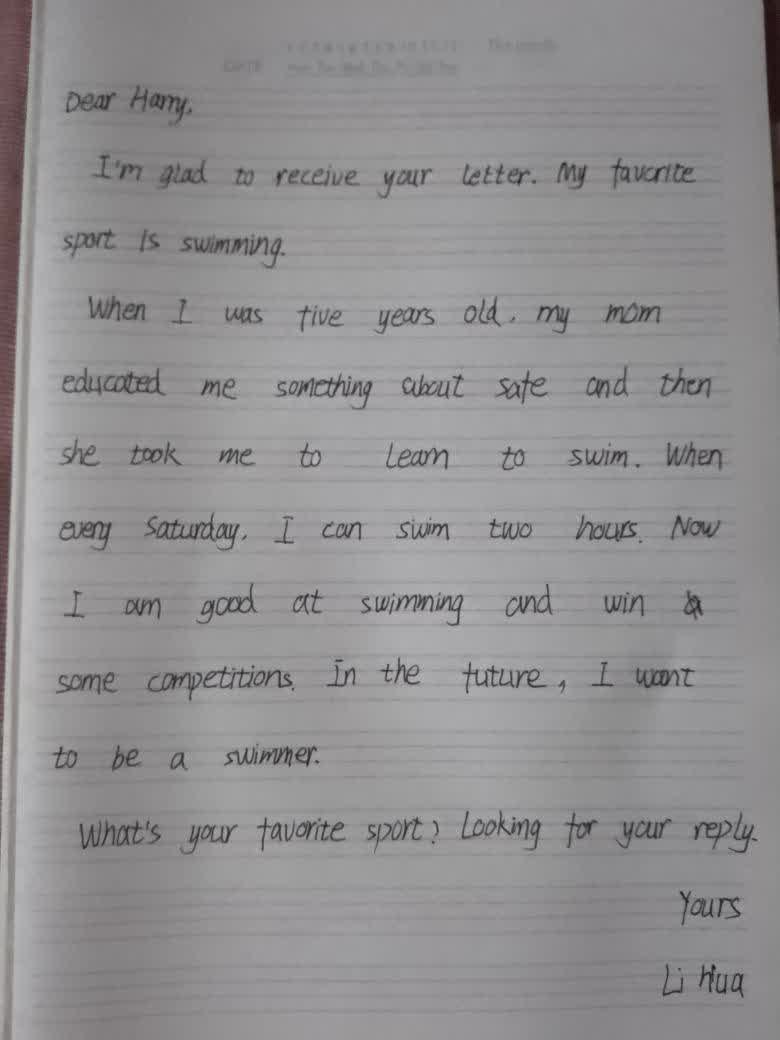 Dear Harry,
I'm glad to receive your letter. My favorite
sport is swimming.
When I was five years old, my mom
educated me something about safe and then
she took me to learn to swim. When
every Saturday, I can swim two hours. Now
I am good at swimming and win
some competitions. In the future, I want
to be a swimmer.
What's your favorite sport? Looking for your reply.
Yours
Li Hua